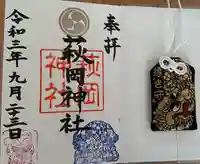 奉拝
萩岡神社
萩岡
神社
令和三年九月二十三日